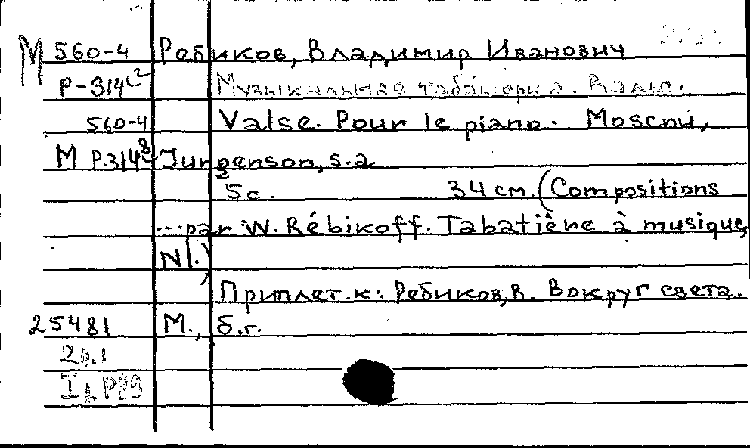 М 560-4 Ребиков, Владимир Иванович
Р-314² Музыкальная табакерка. Вальс.
560-4 Valse. Pour le piano. Moscou,
М Р.314⁸ Jurgenson, s.a.
5с. 34 см. (Compositions
...par W. Rébikoff. Tabatière à musique,
N1.)
Приплет. к: Ребиков, В. Вокруг света.
25481 М., б.г.